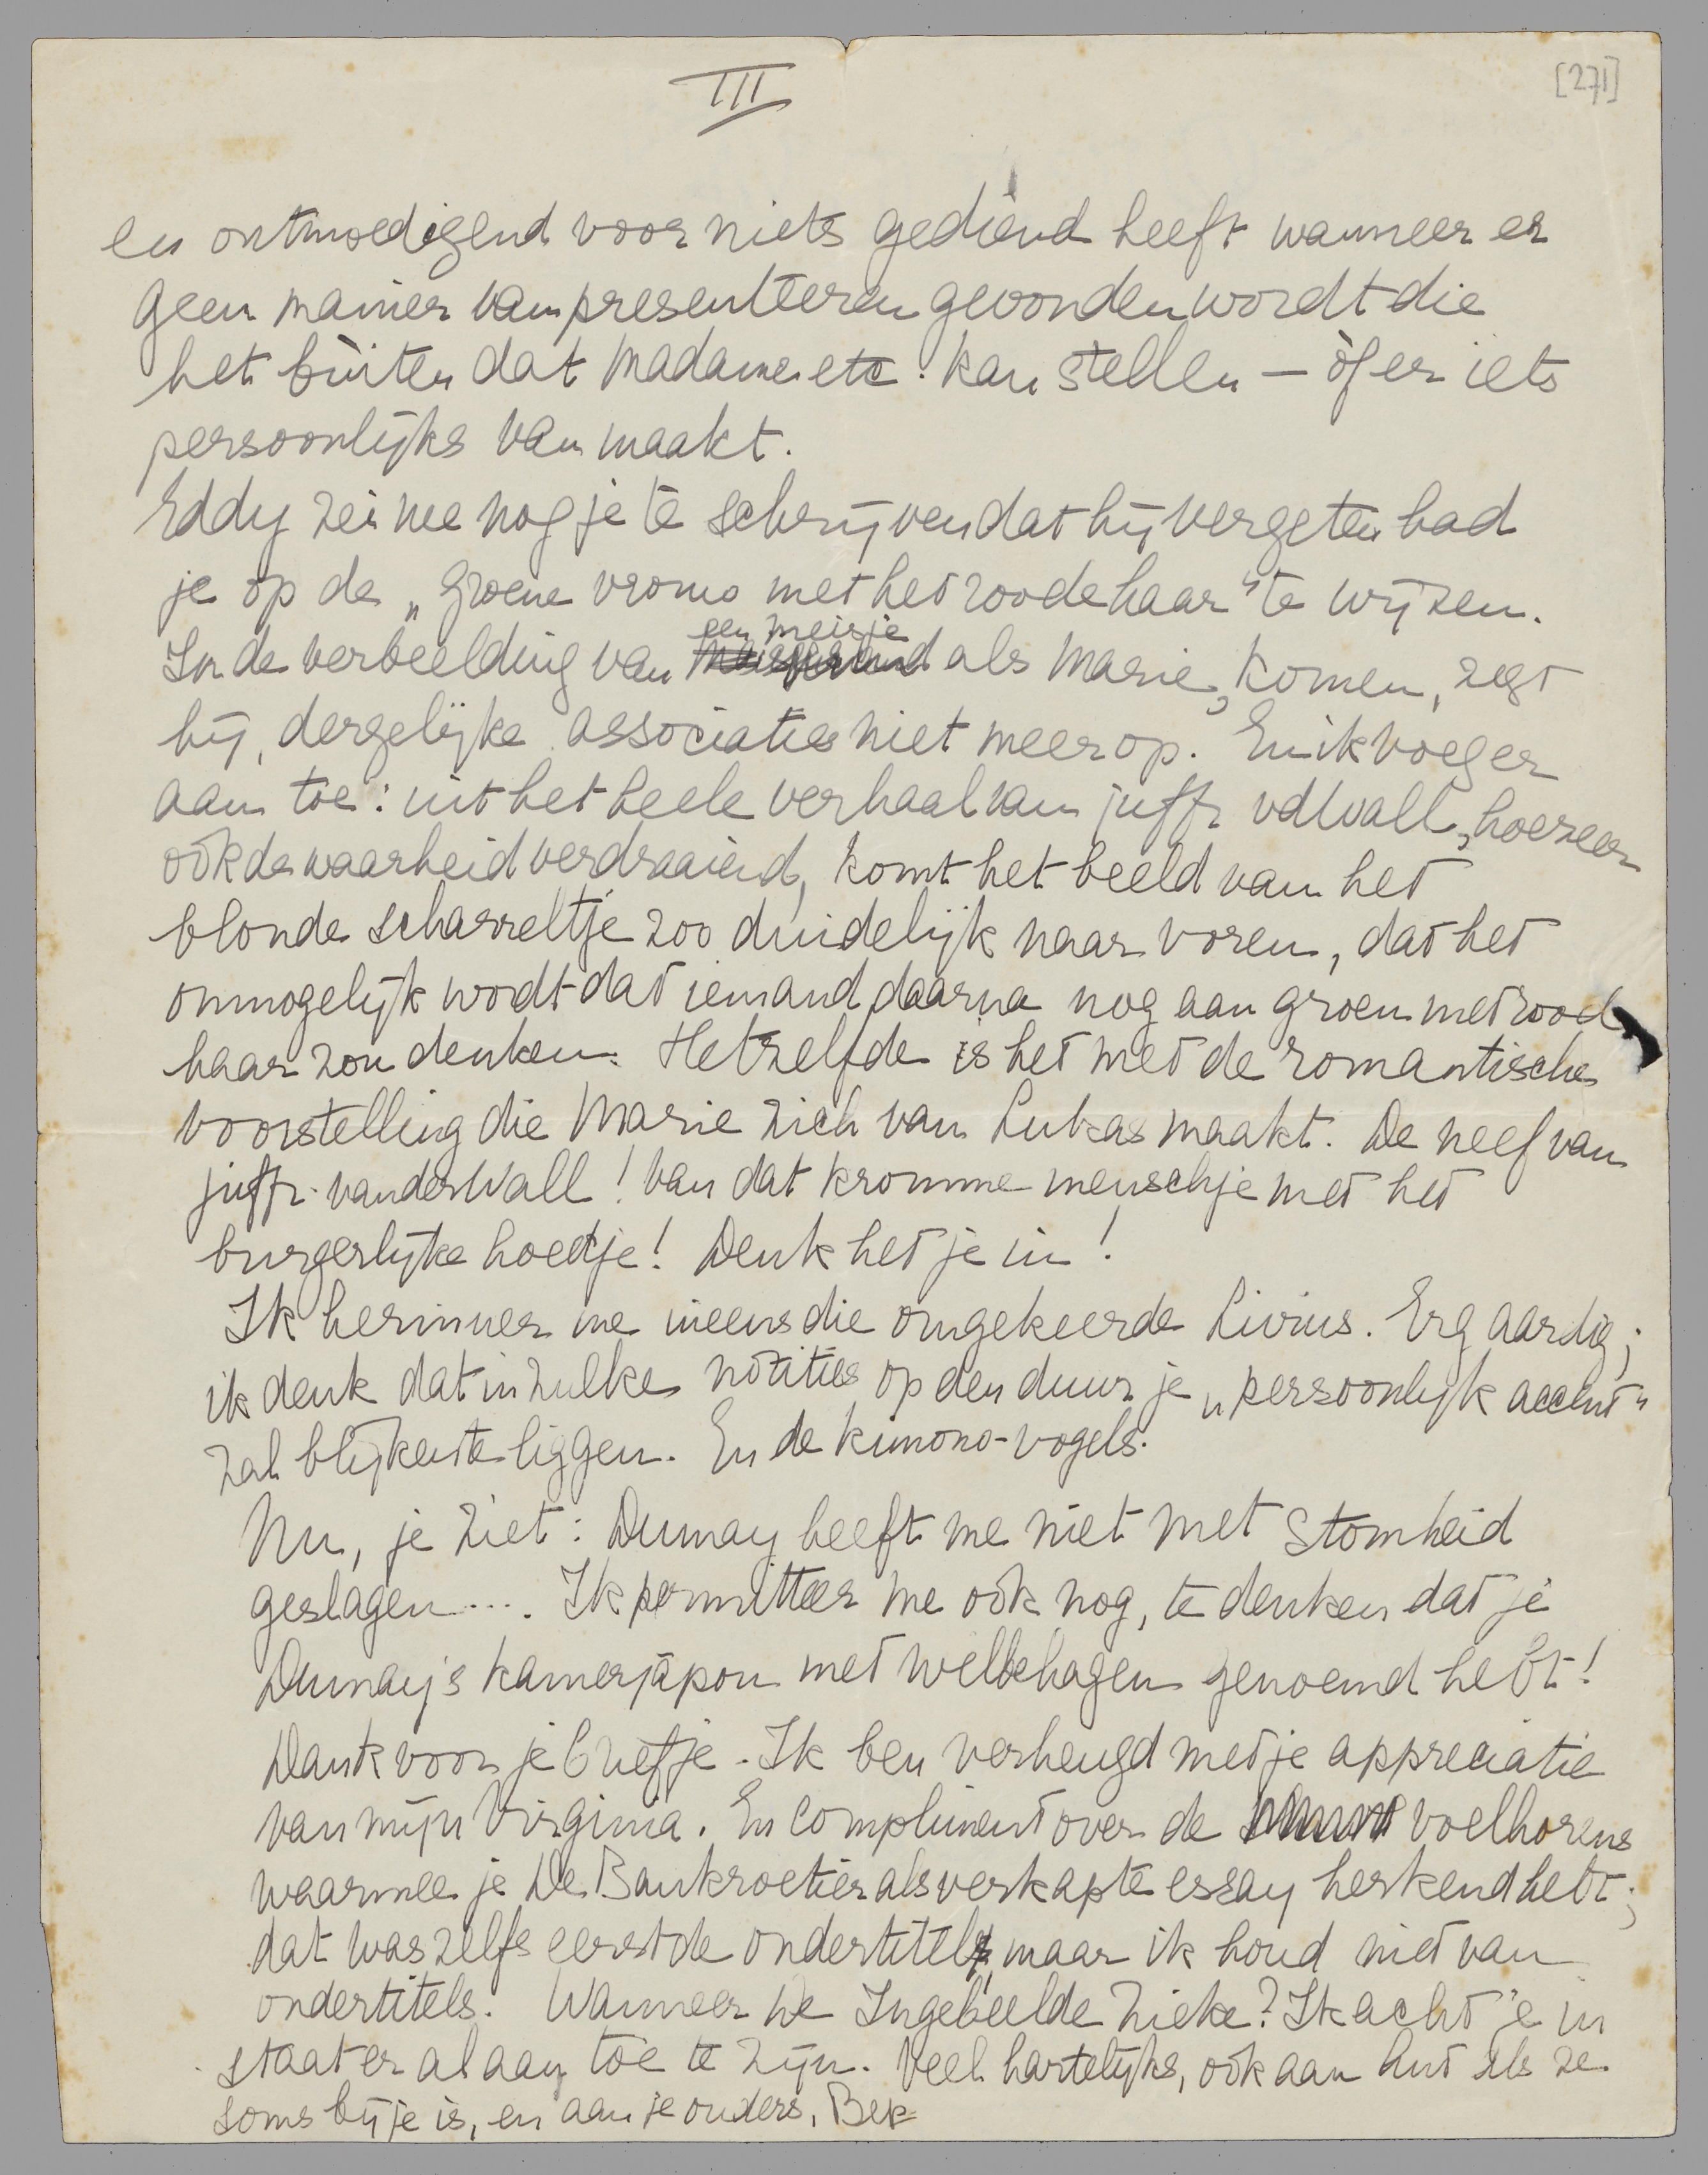 III
[271]
en ontmoedigend voor niets gediend heeft wanneer er
geen manier van presenteeren gevonden wordt die
het buiten dat Madame etc. kan stellen — òf er iets
persoonlijks van maakt.
Eddy zei me nog je te schrijven dat hij vergeten had
je op de „groene vrouw met het roode haar" te wijzen.
een meisje
In de verbeelding van als Marie, komen, zegt
hij, dergelijke associaties niet meer op. En ik voeg er
aan toe: uit het heele verhaal van juffr vdWall, hoezeer
ook de waarheid verdraaiend, komt het beeld van het
blonde scharreltje zoo duidelijk naar voren, dat het
onmogelijk wordt dat iemand daarna nog aan groen met rood
haar zou denken. Hetzelfde is het met de romantische
voorstelling die Marie zich van Lukas maakt. De neef van
juffr. van der Wall! Van dat kromme menschje met het
burgerlijke hoedje! Denk het je in!
Ik herinner me ineens die omgekeerde Livius. Erg aardig;
ik denk dat in zulke notities op den duur je „persoonlijk accent"
zal blijken te liggen. En de kimono-vogels.
Nu, je ziet: Dumay heeft me niet met stomheid
geslagen .... Ik permitteer me ook nog, te denken dat je
Dumay's kamerjapon met welbehagen genoemd hebt!
Dank voor je briefje. Ik ben verheugd met je appreciatie
van mijn Virginia. En compliment over de voelhorens
waarmee je De Bankroetier als verkapte essay herkend hebt;
dat was zelfs eerst de ondertitel, maar ik houd niet van
ondertitels. Wanneer De Ingebeelde Zieke? Ik acht je in
staat er al aan toe te zijn. Veel hartelijks, ook aan Ant als ze
soms bij je is, en aan je ouders, Bep